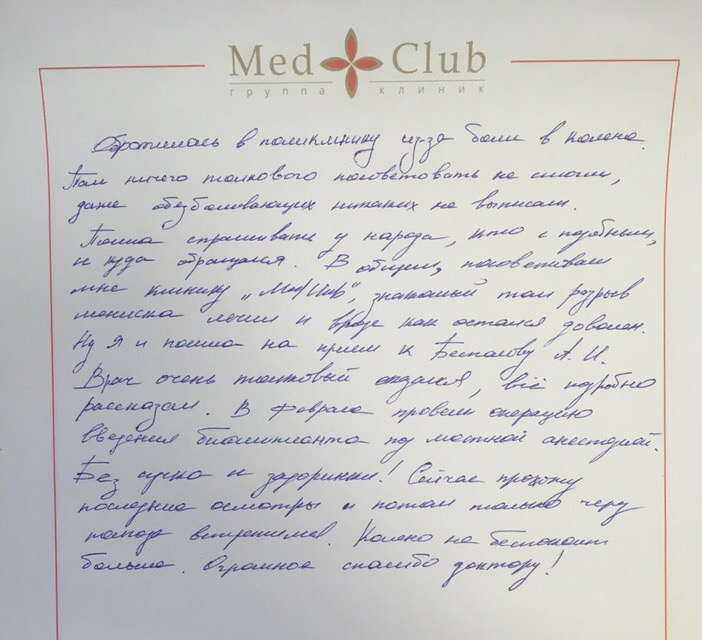 Med Club
группа клиник
Обратилась в поликлинику из-за боли в колене.
Там ничего толкового посоветовать не смогли,
даже обезболивающих никаких не выписали.
Пошла спрашивать у народа, кто с подобным,
и куда обращался. В общем, посоветовали
мне клинику „МедКлаб", знакомый там разрыв
мениска лечил и вроде как остался доволен.
Ну я и пошла на прием к Беспалову А. И.
Врач очень толковый оказался, всё подробно
рассказал. В феврале провели операцию
введения биоимпланта под местной анестезией.
Без сучка и задоринки! Сейчас прохожу
последние осмотры и потом только через
полгода встретимся. Колено не беспокоит
больше. Огромное спасибо доктору!